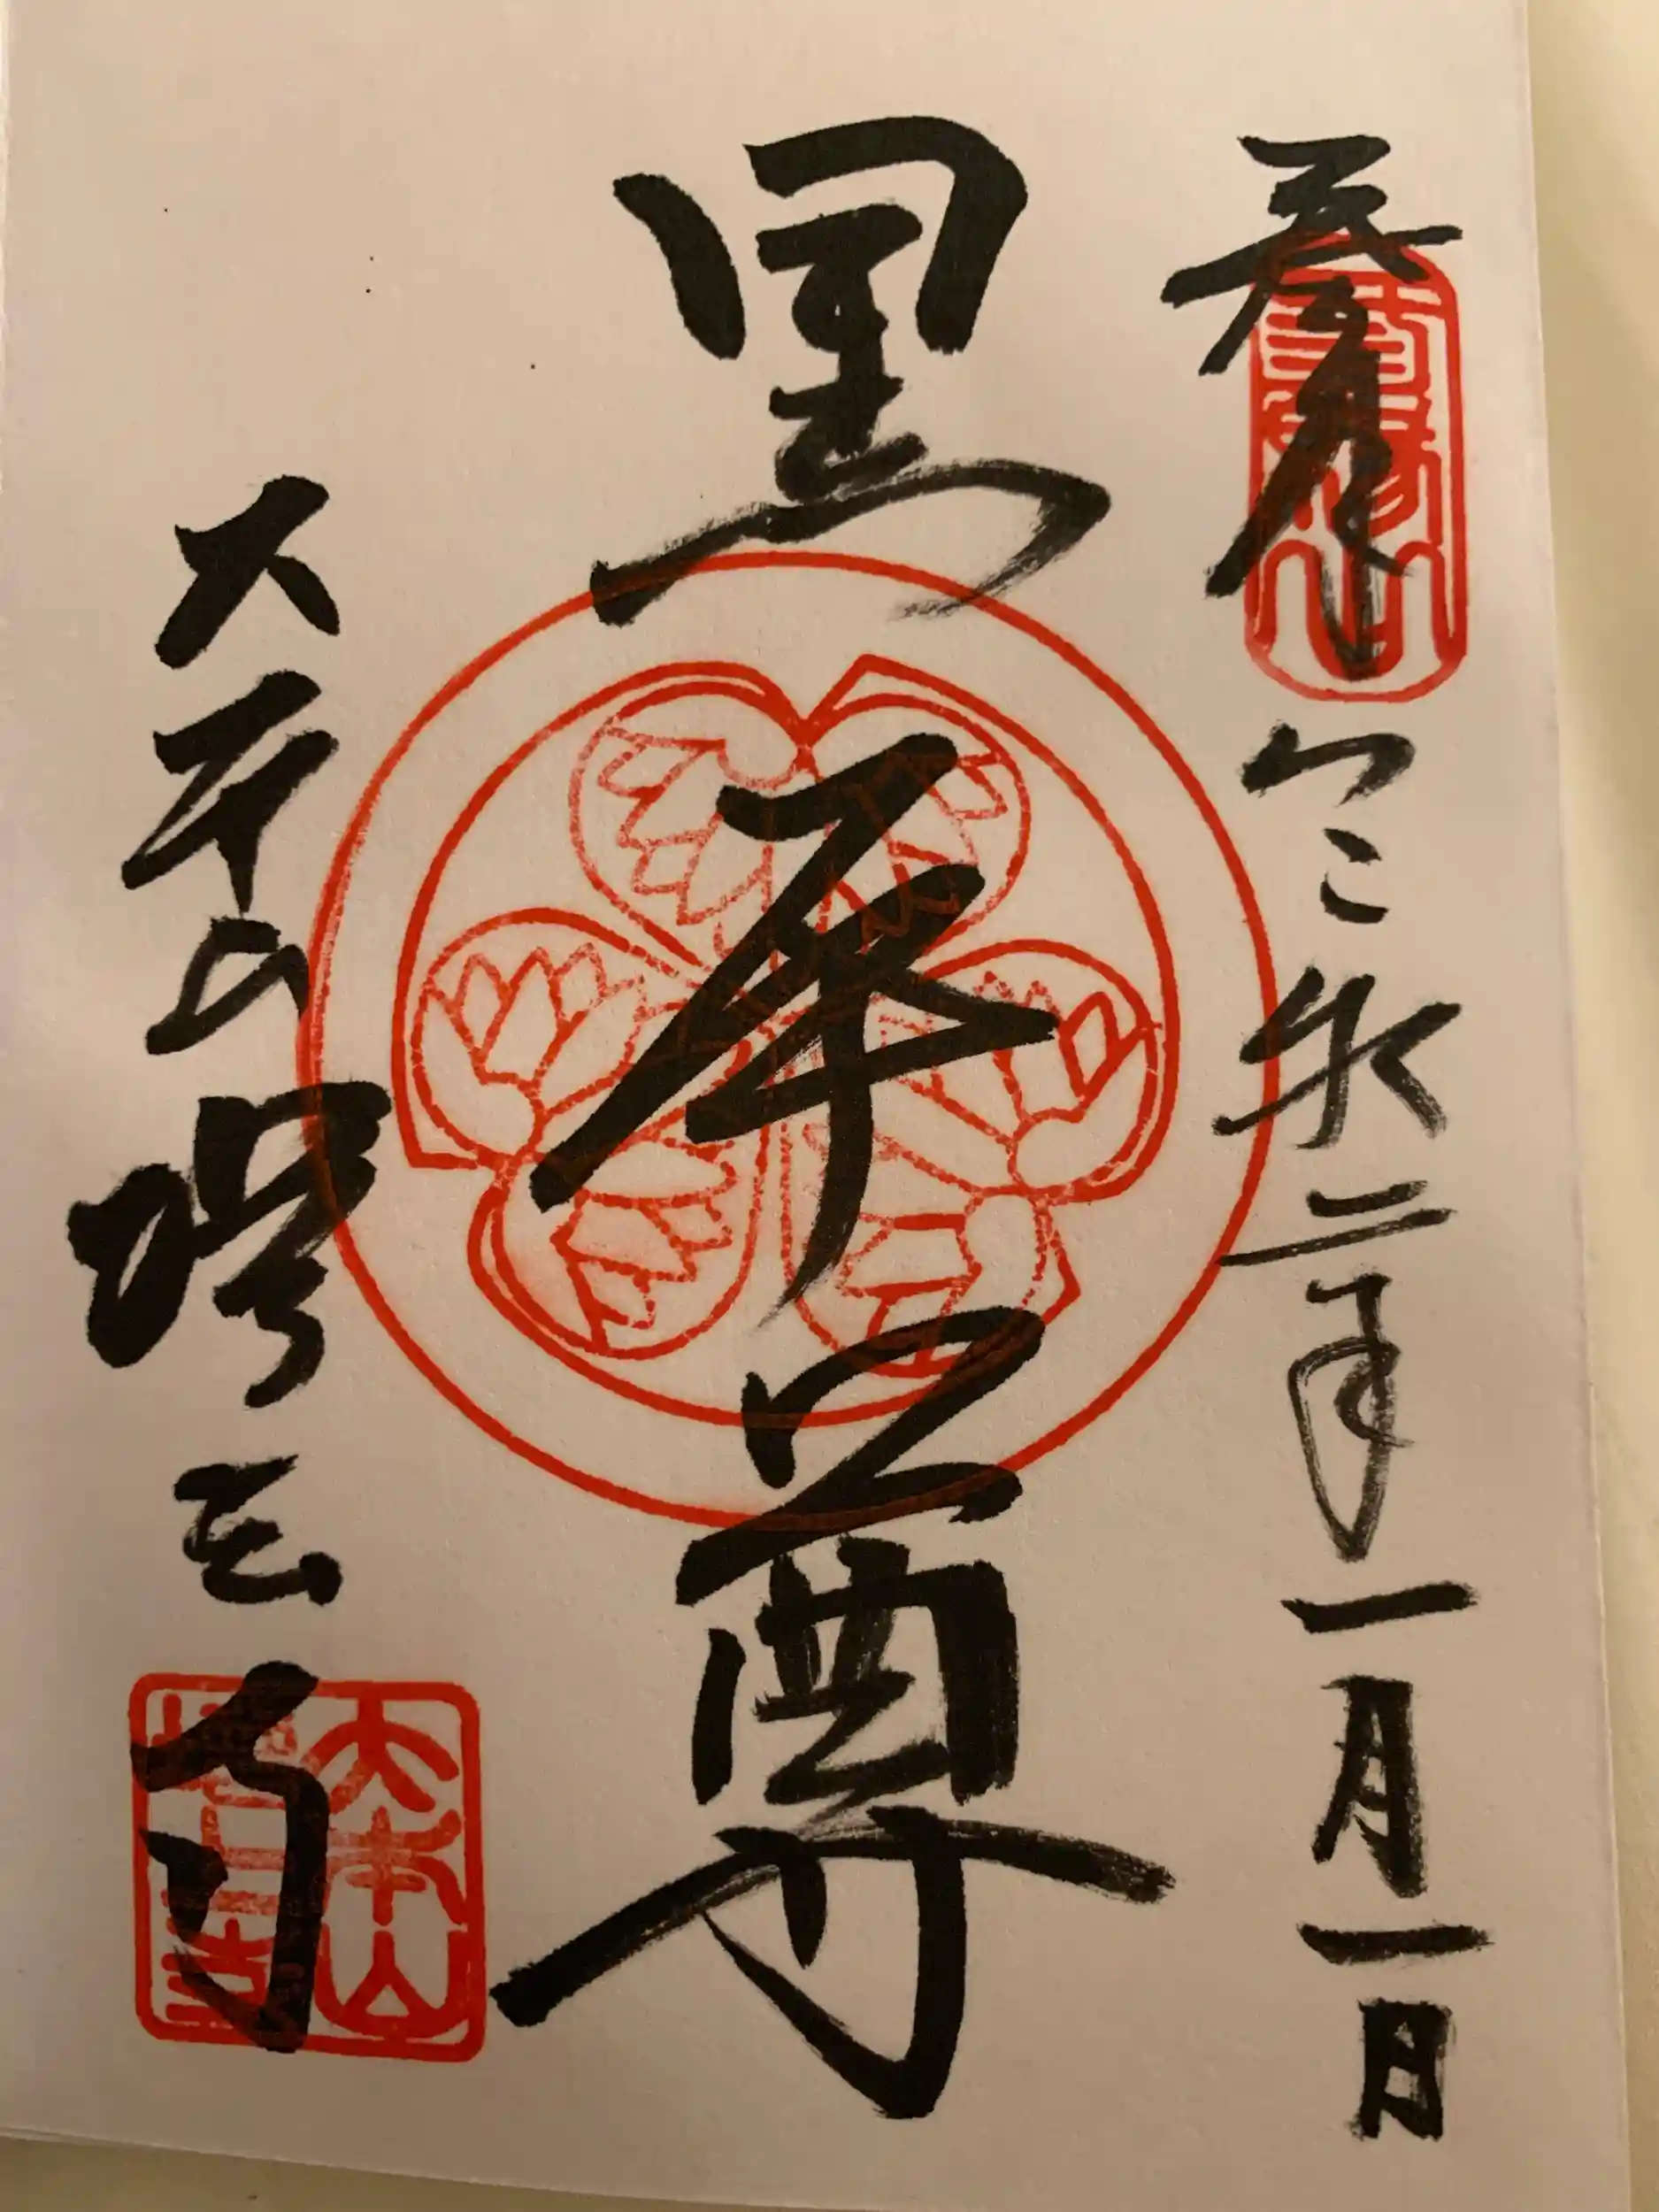 奉拝 令和二年一月一日
黒本尊
大本山 増上寺
大本山
増上寺